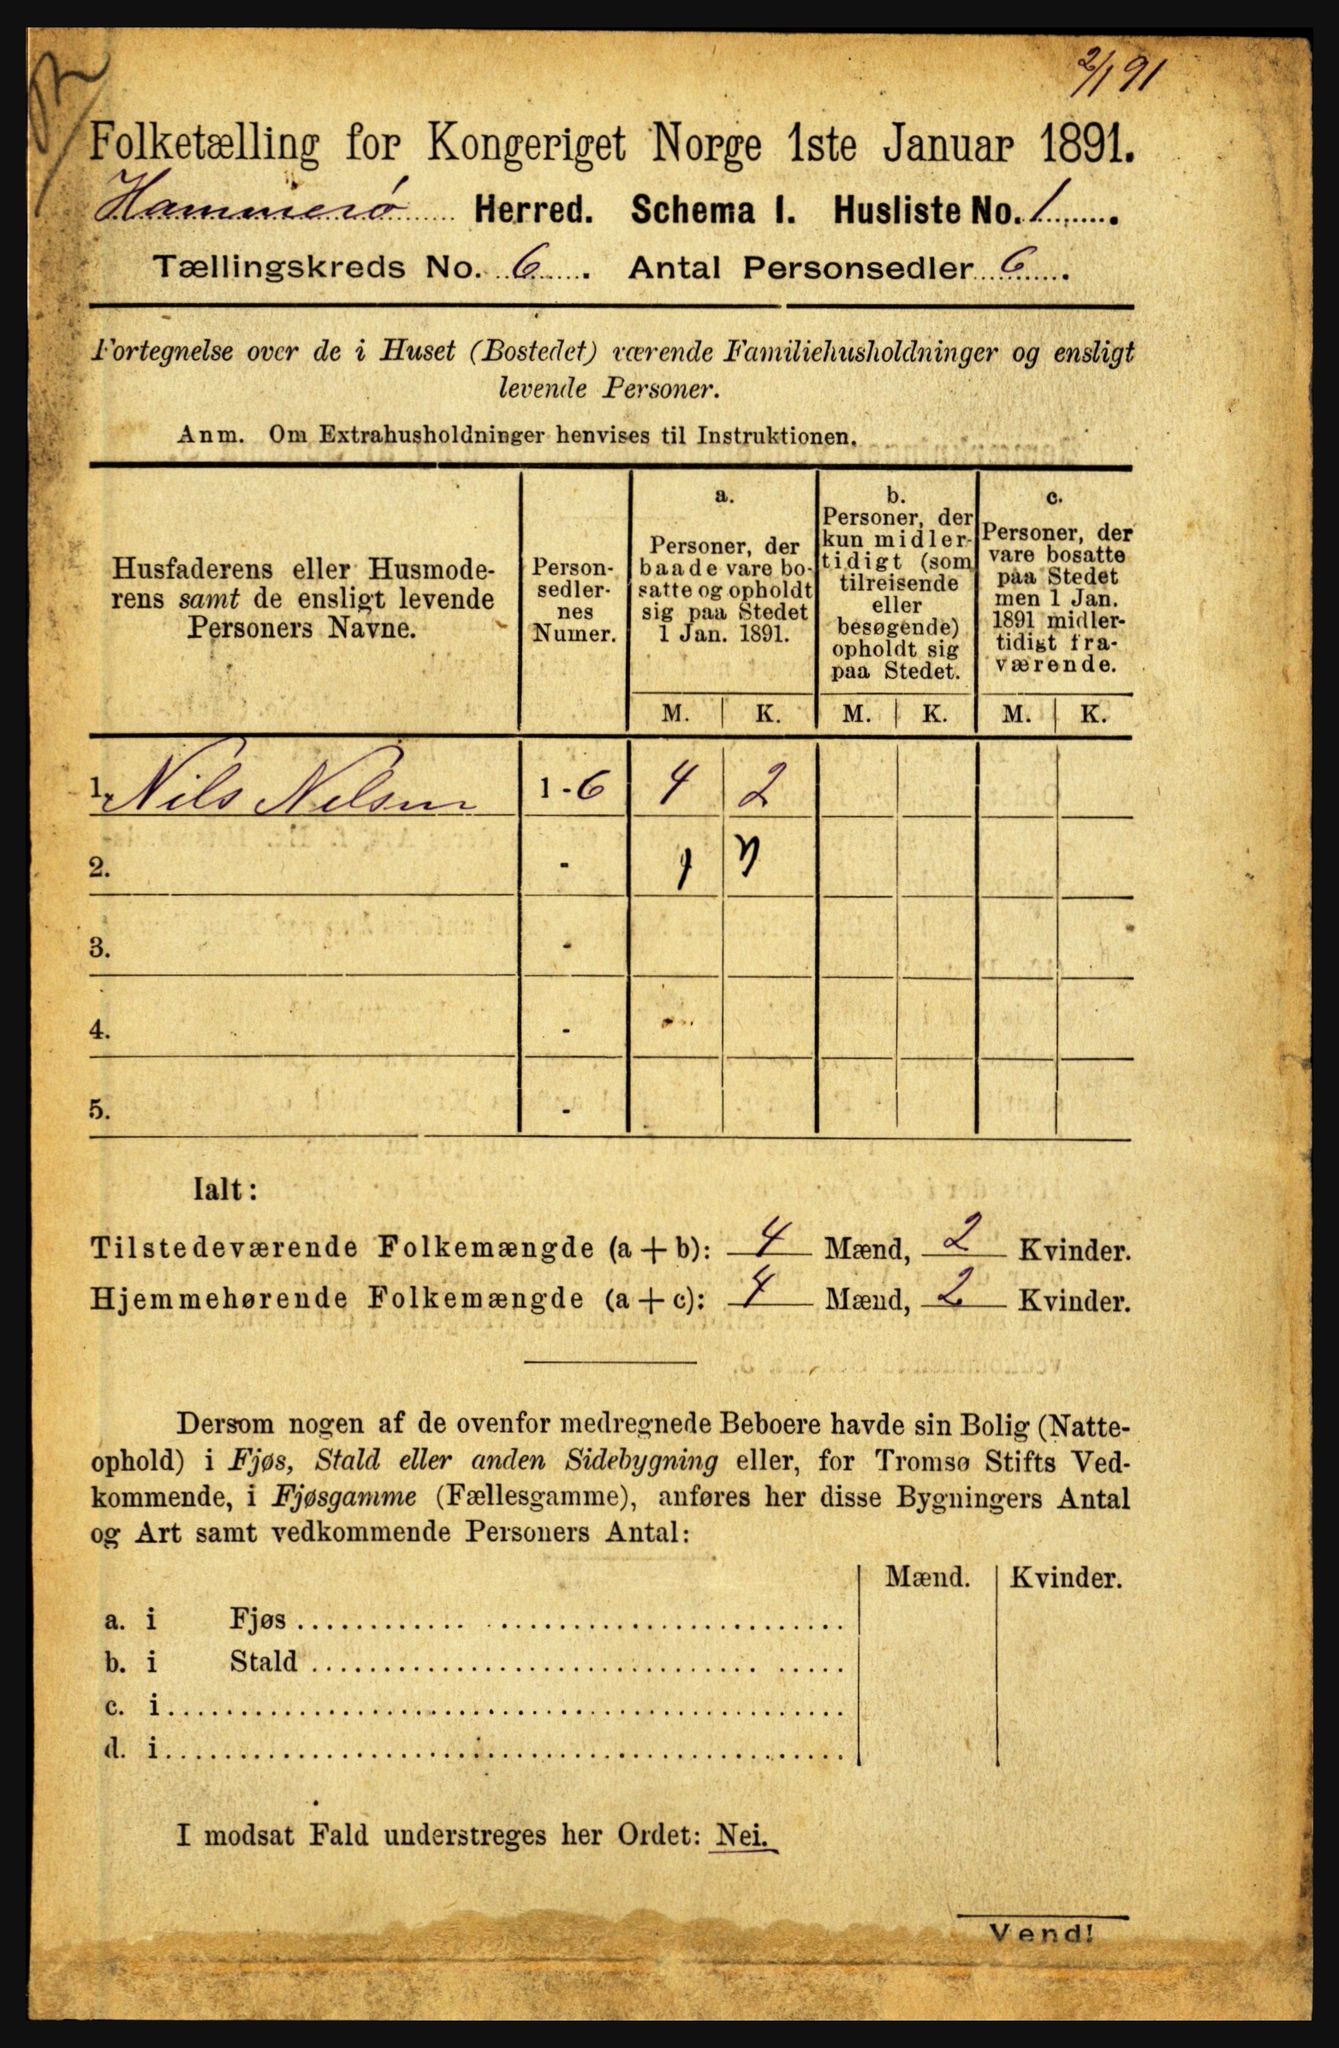 2/1 91
Folketælling for Kongeriget Norge 1ste Januar 1891.
Hammerø Herred. Schema I. Husliste No. 1
Tællingskreds No. 6. Antal Personsedler 6.
Fortegnelse over de i Huset (Bostedet) værende Familiehusholdninger og ensligt
levende Personer.
Anm. Om Extrahusholdninger henvises til Instruktionen.
Husfaderens eller Husmode-
rens samt de ensligt levende
Personers Navne.
Person-
sedler-
nes
Numer.
a.
Personer, der
baade vare bo-
satte og opholdt
sig paa Stedet
1 Jan. 1891.
b.
Personer, der
kun midler-
tidigt (som
tilreisende
eller
besøgende)
opholdt sig
paa Stedet.
c.
Personer, der
vare bosatte
paa Stedet
men 1 Jan.
1891 midler-
tidigt fra-
værende.
M. K. M. K. M. K.
1. Nils Nelsen 1-6 4 2
2. -
3. -
4. -
5. -
Ialt:
Tilstedeværende Folkemængde (a + b): 4 Mænd, 2 Kvinder.
Hjemmehørende Folkemængde (a + c): 4 Mænd, 2 Kvinder.
Dersom nogen af de ovenfor medregnede Beboere havde sin Bolig (Natte-
ophold) i Fjøs, Stald eller anden Sidebygning eller, for Tromsø Stifts Ved-
kommende, i Fjøsgamme (Fællesgamme), anføres her disse Bygningers Antal
og Art samt vedkommende Personers Antal:
Mænd. Kvinder.
a. i Fjøs
b. i Stald
c. i
d. i
I modsat Fald understreges her Ordet: Nei.
Vend!